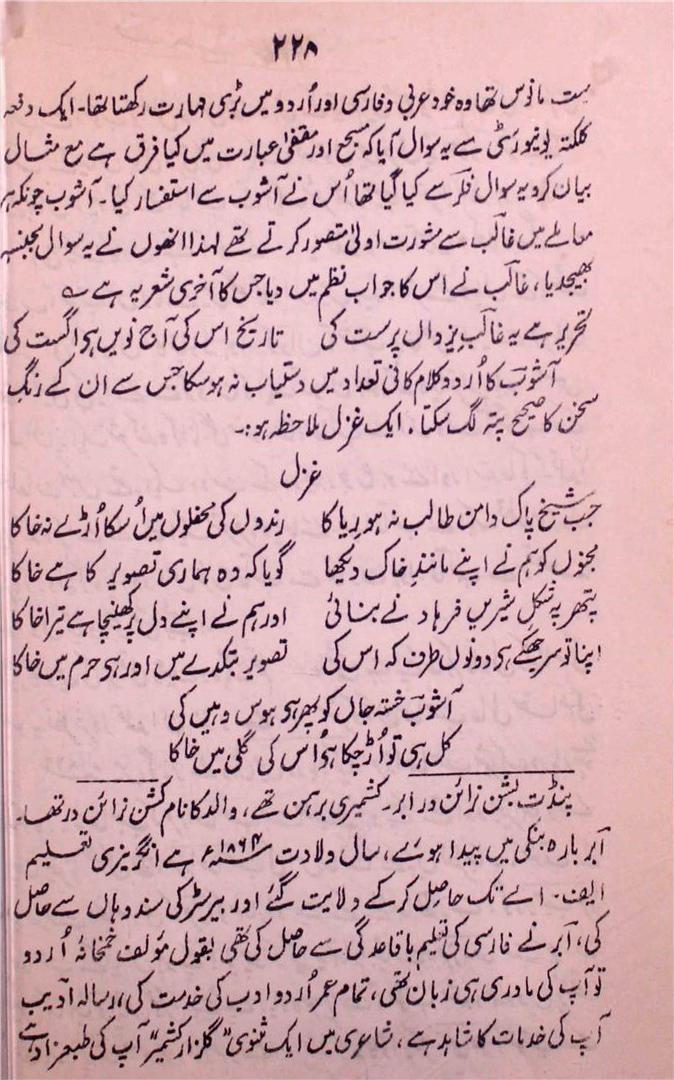 ۲۲۸
ست مانوس تھا وہ خود عربی و فارسی اور اُردو میں بڑی مہارت رکھتا تھا۔ ایک دفعہ
کلکتہ یونیورسٹی سے یہ سوال آیا کہ مسجع اور مقفیٰ عبارت میں کیا فرق ہے مع مثال
بیان کرو یہ سوال فلر سے کیا گیا تھا اُس نے آشوب سے استفسار کیا۔ آشوب چونکہ ہر
معاملے میں غالب سے مشورت اولیٰ متصور کرتے تھے لہذا انھوں نے یہ سوال بجنسہ
بھیجدیا، غالب نے اس کا جواب نظم میں دیا جس کا آخری شعر یہ ہے ؎
تحریر ہے یہ غالب یزداں پرست کی تاریخ اس کی آج نویں ہی اگست کی
آشوب کا اُردو کلام کافی تعداد میں دستیاب نہ ہو سکا جس سے ان کے رنگِ
سخن کا صحیح پتہ لگ سکتا۔ ایک غزل ملاحظہ ہو:۔
غزل
جب شیخ پاک دامن طالب نہ ہو ریا کا رندوں کی محفلوں میں اُسکا اُڑے نہ خاکا
مجنوں کو ہم نے اپنے مانندِ خاک دیکھا گویا کہ وہ ہماری تصویر کا ہے خاکا
پتھر پہ شکلِ شیریں فرہاد نے بنائی اور ہم نے اپنے دل پر کھینچا ہے تیرا خاکا
اپنا تو سر جھکے ہی دونوں طرف کہ اس کی تصویر بتکدے میں اور ہی حرم میں خاکا
آشوب خستہ جاں کو پھر ہی ہوس وہیں کی
کل ہی تو اُڑ چکا ہی اُس کی گلی میں خاکا
پنڈت بشن نرائن در ابر۔ کشمیری برہمن تھے، والد کا نام کشن نرائن در تھا۔
ابر بارہ بنکی میں پیدا ہوئے، سال ولادت ۱۸۶۴ء ہے انگریزی تعلیم
ایف۔ اے تک حاصل کر کے ولایت گئے اور بیرسٹر کی سند وہاں سے حاصل
کی، ابر نے فارسی کی تعلیم باقاعدگی سے حاصل کی تھی بقول مؤلف خمخانہ اُردو
تو آپ کی مادری ہی زبان تھی، تمام عمر اُردو ادب کی خدمت کی، رسالہ ادیب
آپ کی خدمات کا شاہد ہے، شاعری میں ایک مثنوی "گلزار کشمیر" آپ کی طبعزاد ہے